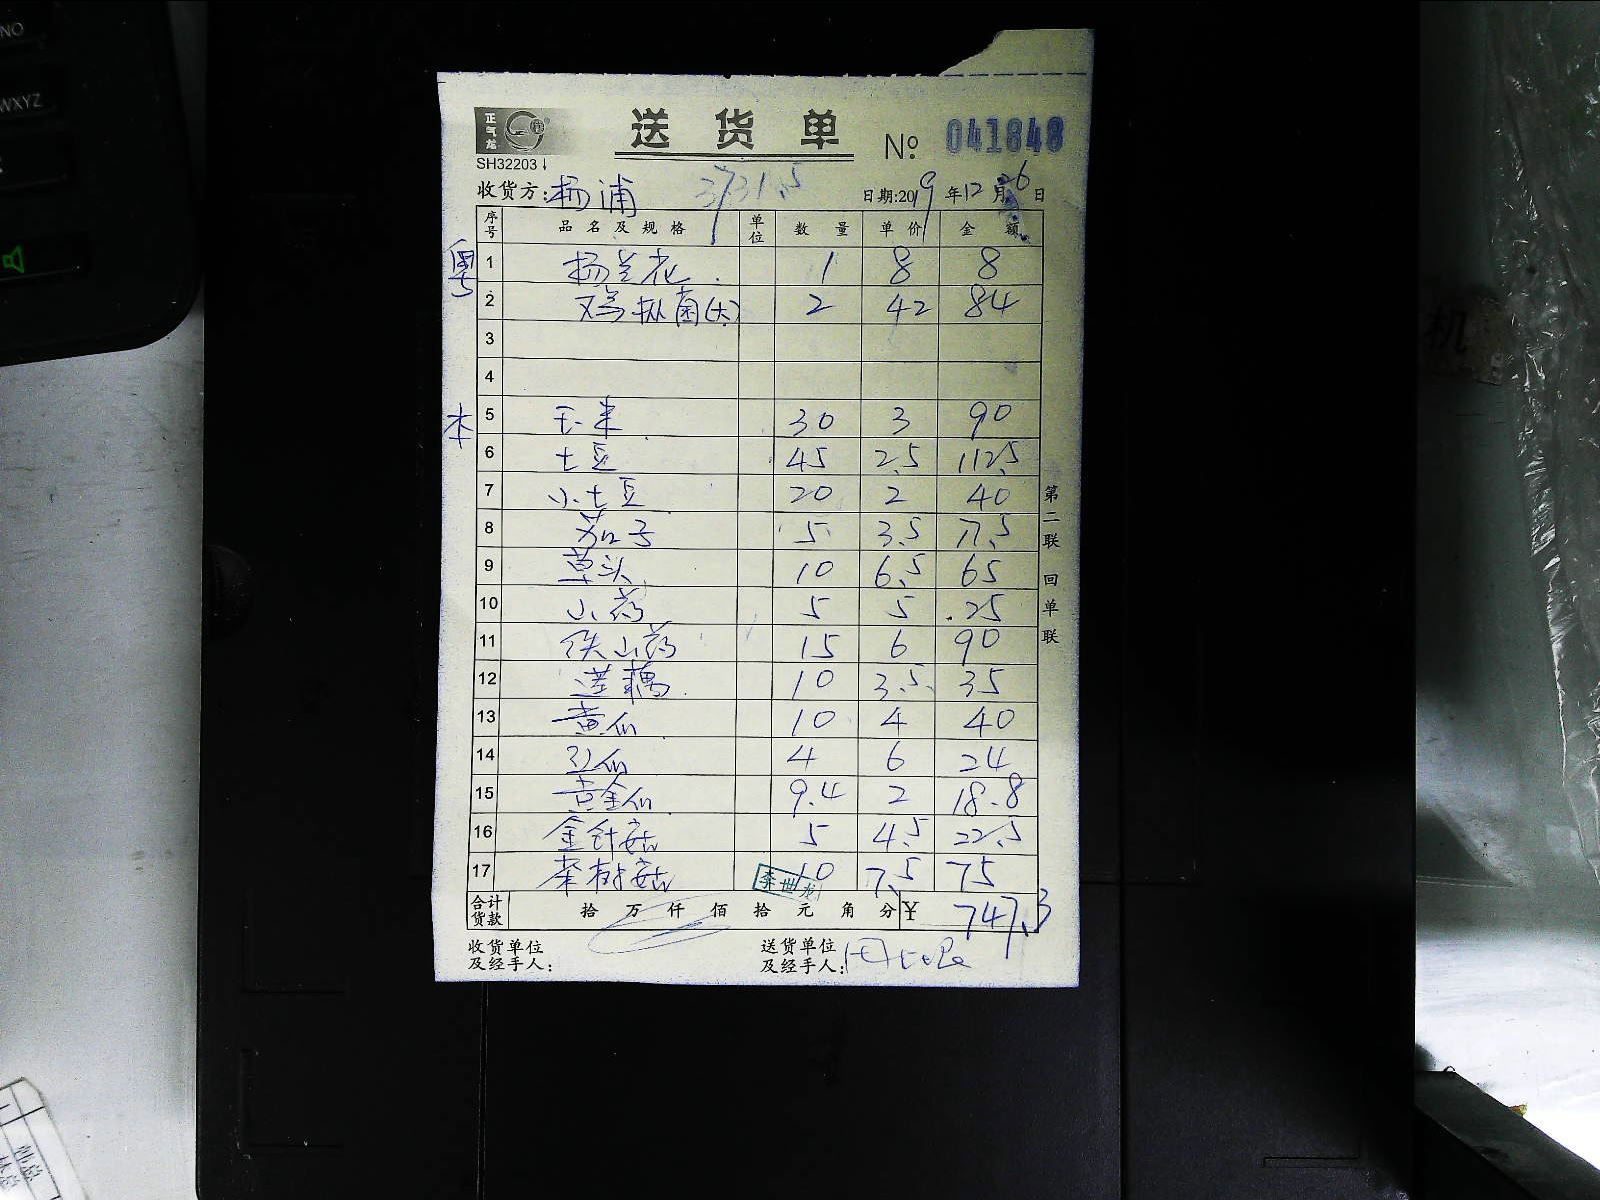 NO
WXYZ
正气龙
送货单 № 041848
SH32203
收货方:杨浦 3731.5 日期:2019年12月26日
序号 品名及规格 单位 数量 单价 金额
粤
1 杨兰花 1 8 8
2 鸡枞菌(大) 2 42 84
3
4
本
5 玉米 30 3 90
6 土豆 45 2.5 112.5
7 小土豆 20 2 40
8 茄子 5 3.5 17.5
9 草头 10 6.5 65
10 山药 5 5 25
11 铁山药 15 6 90
12 莲藕 10 3.5 35
13 黄瓜 10 4 40
14 红瓜 4 6 24
15 黄金瓜 9.4 2 18.8
16 金针菇 5 4.5 22.5
17 茶树菇 10 7.5 75
李世龙
合计货款 拾万仟佰拾元角分 ¥ 747.3
收货单位及经手人:
送货单位及经手人:
第二联 回单联
机